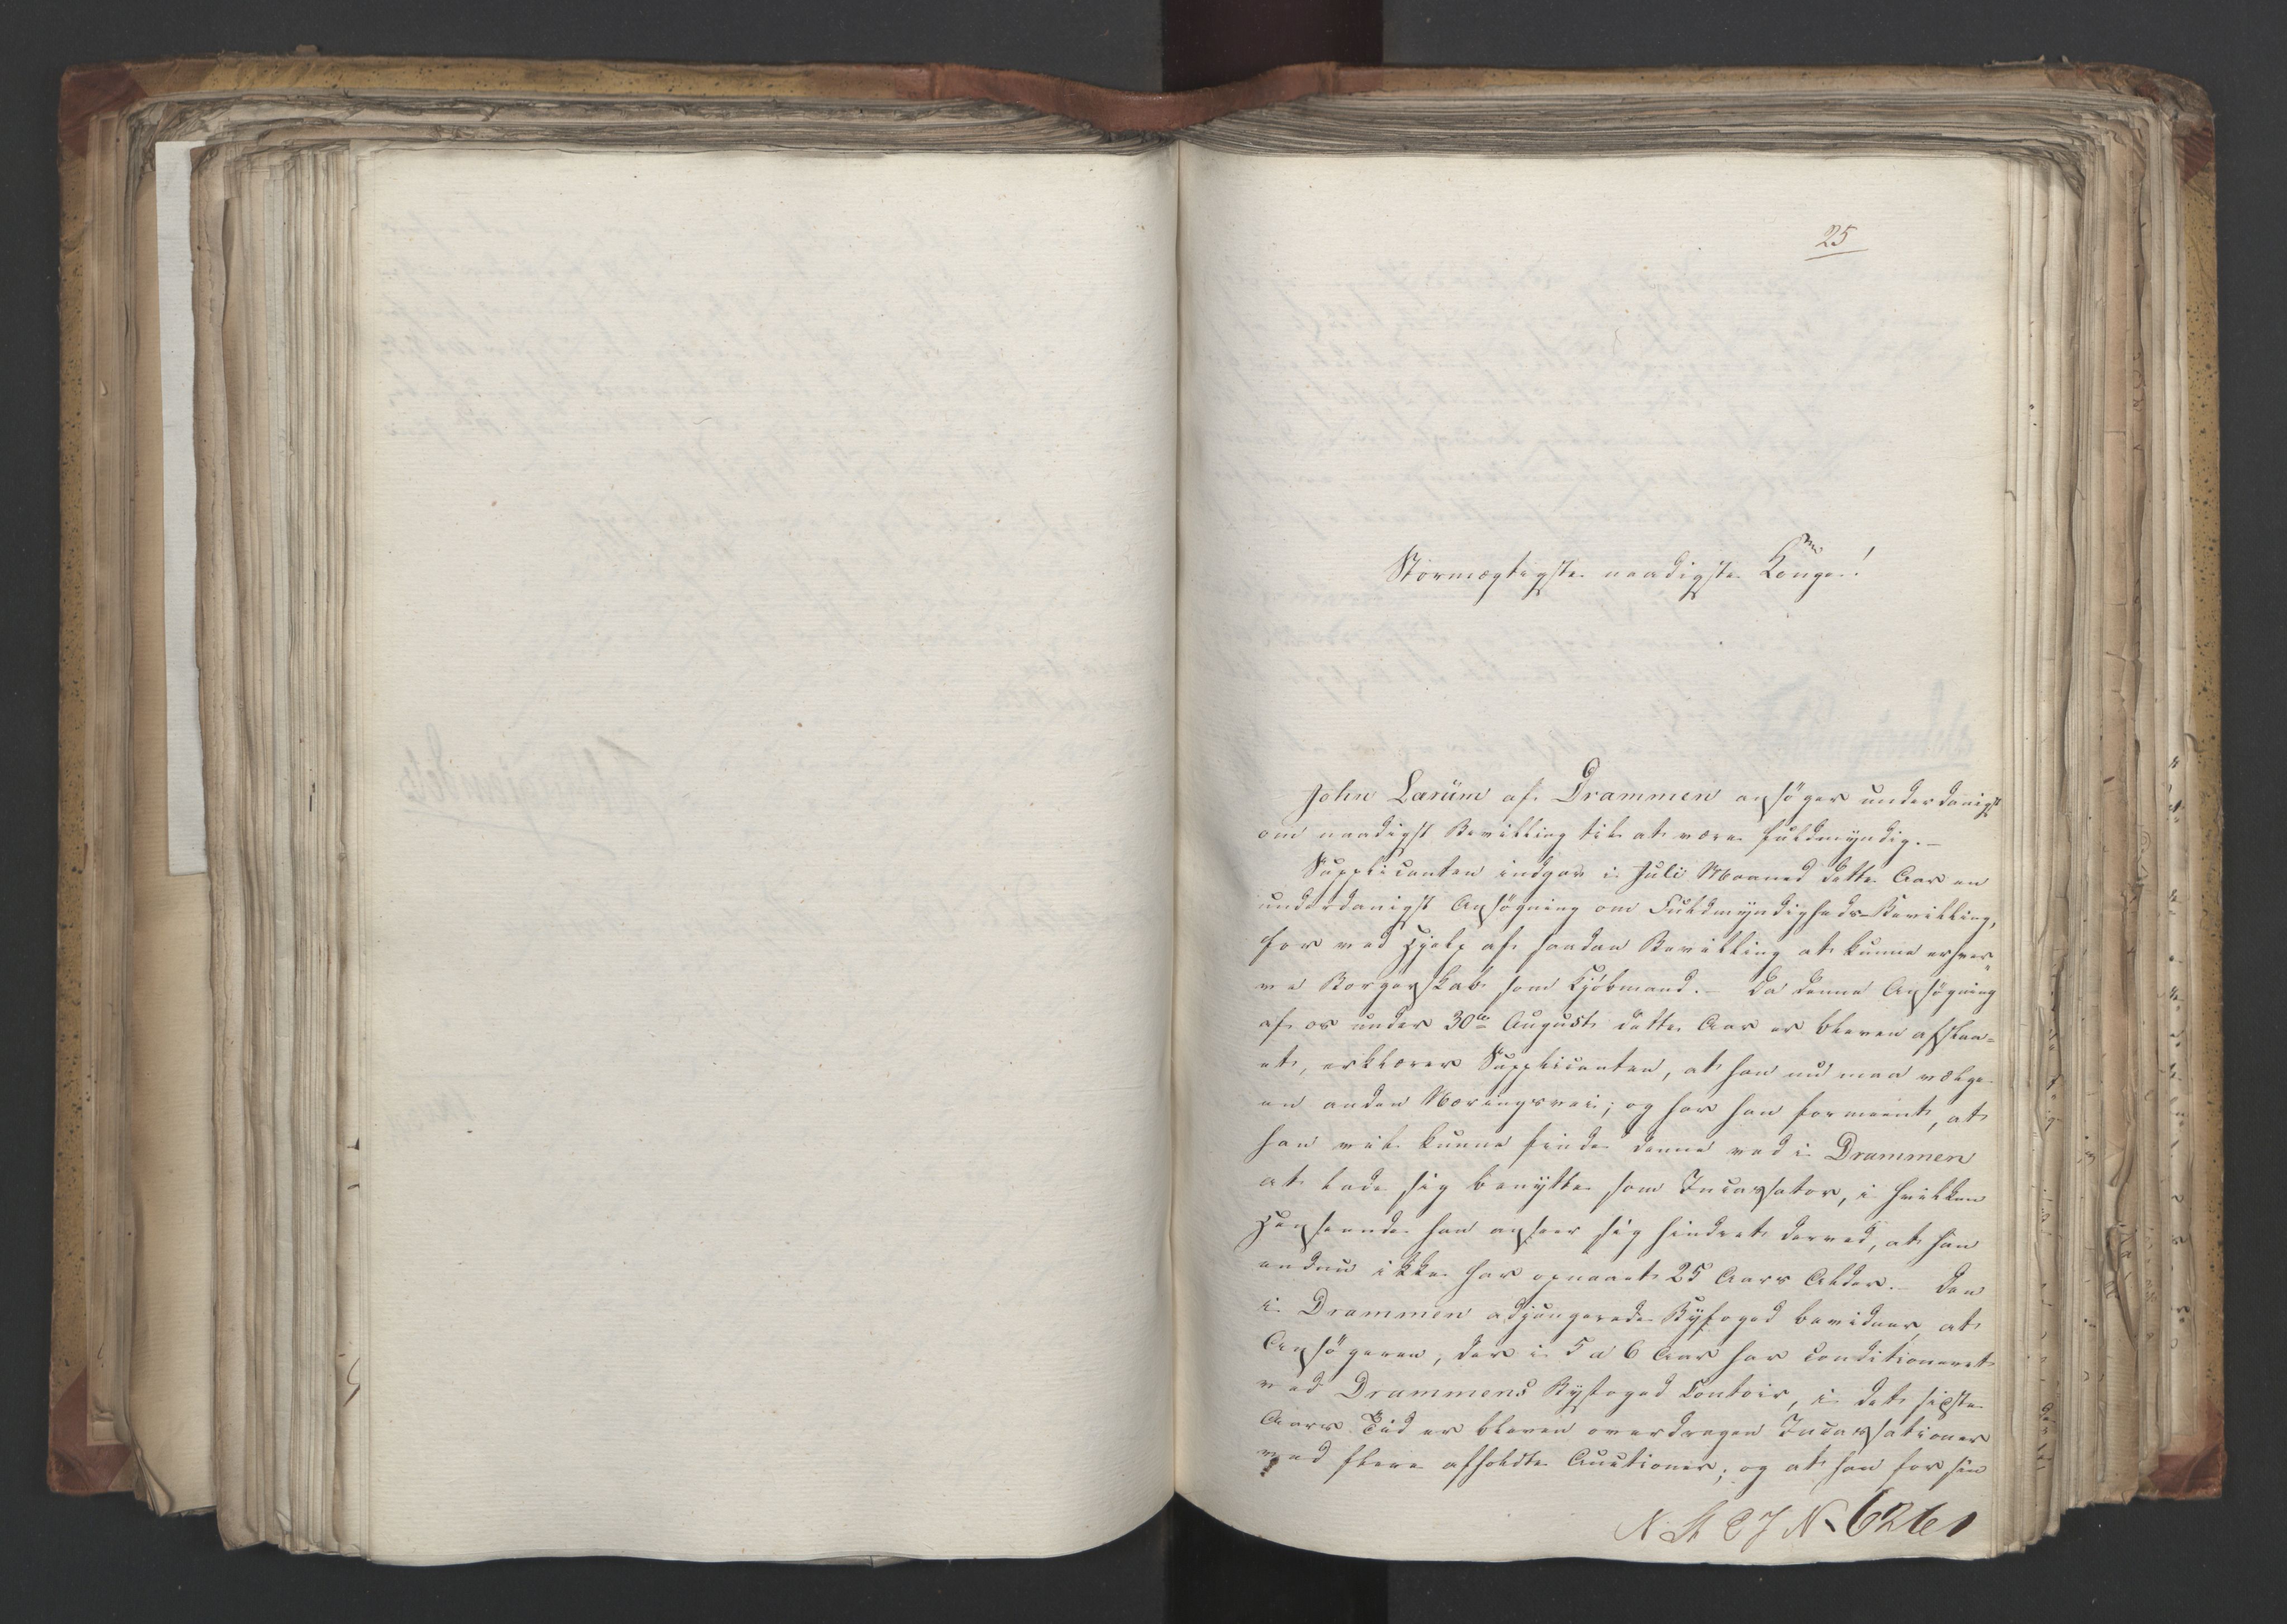 25
Stormægtigste naadigste Konge!
John Larüm af Drammen ansöger underdanigst
om naadigst Bevilling til at være fuldmyndig.–
Supplicanten indgav i Juli Maaned dette Aar en
underdanigst Ansögning om Fuldmyndigheds-Bevilling,
for ved Hjelp af saadan Bevilling at kunne erhver-
ve Borgerskab som Kjöbmand.– Da denne Ansögning
af os under 30te August dette Aar er bleven afslaa-
et, erklærer Supplicanten, at han nu maa vælge
en anden Næringsvei; og har han formeent, at
han vil kunne finde denne ved i Drammen
at lade sig benytte som Incassator, i hvilken
Henseende han anseer sig hindret derved, at han
endnu ikke har opnaaet 25 Aars Alder.– Den
i Drammen adjungerede Byfoged bevidner, at
Ansögeren, der i 5 a 6 Aar har conditioneret
ved Drammens Byfoged Contoir, i det sidste
Aars Tid er bleven overdragen Incassationer
ved flere afholdte Auctioner; og at han for sin
N. St C J N– 6261